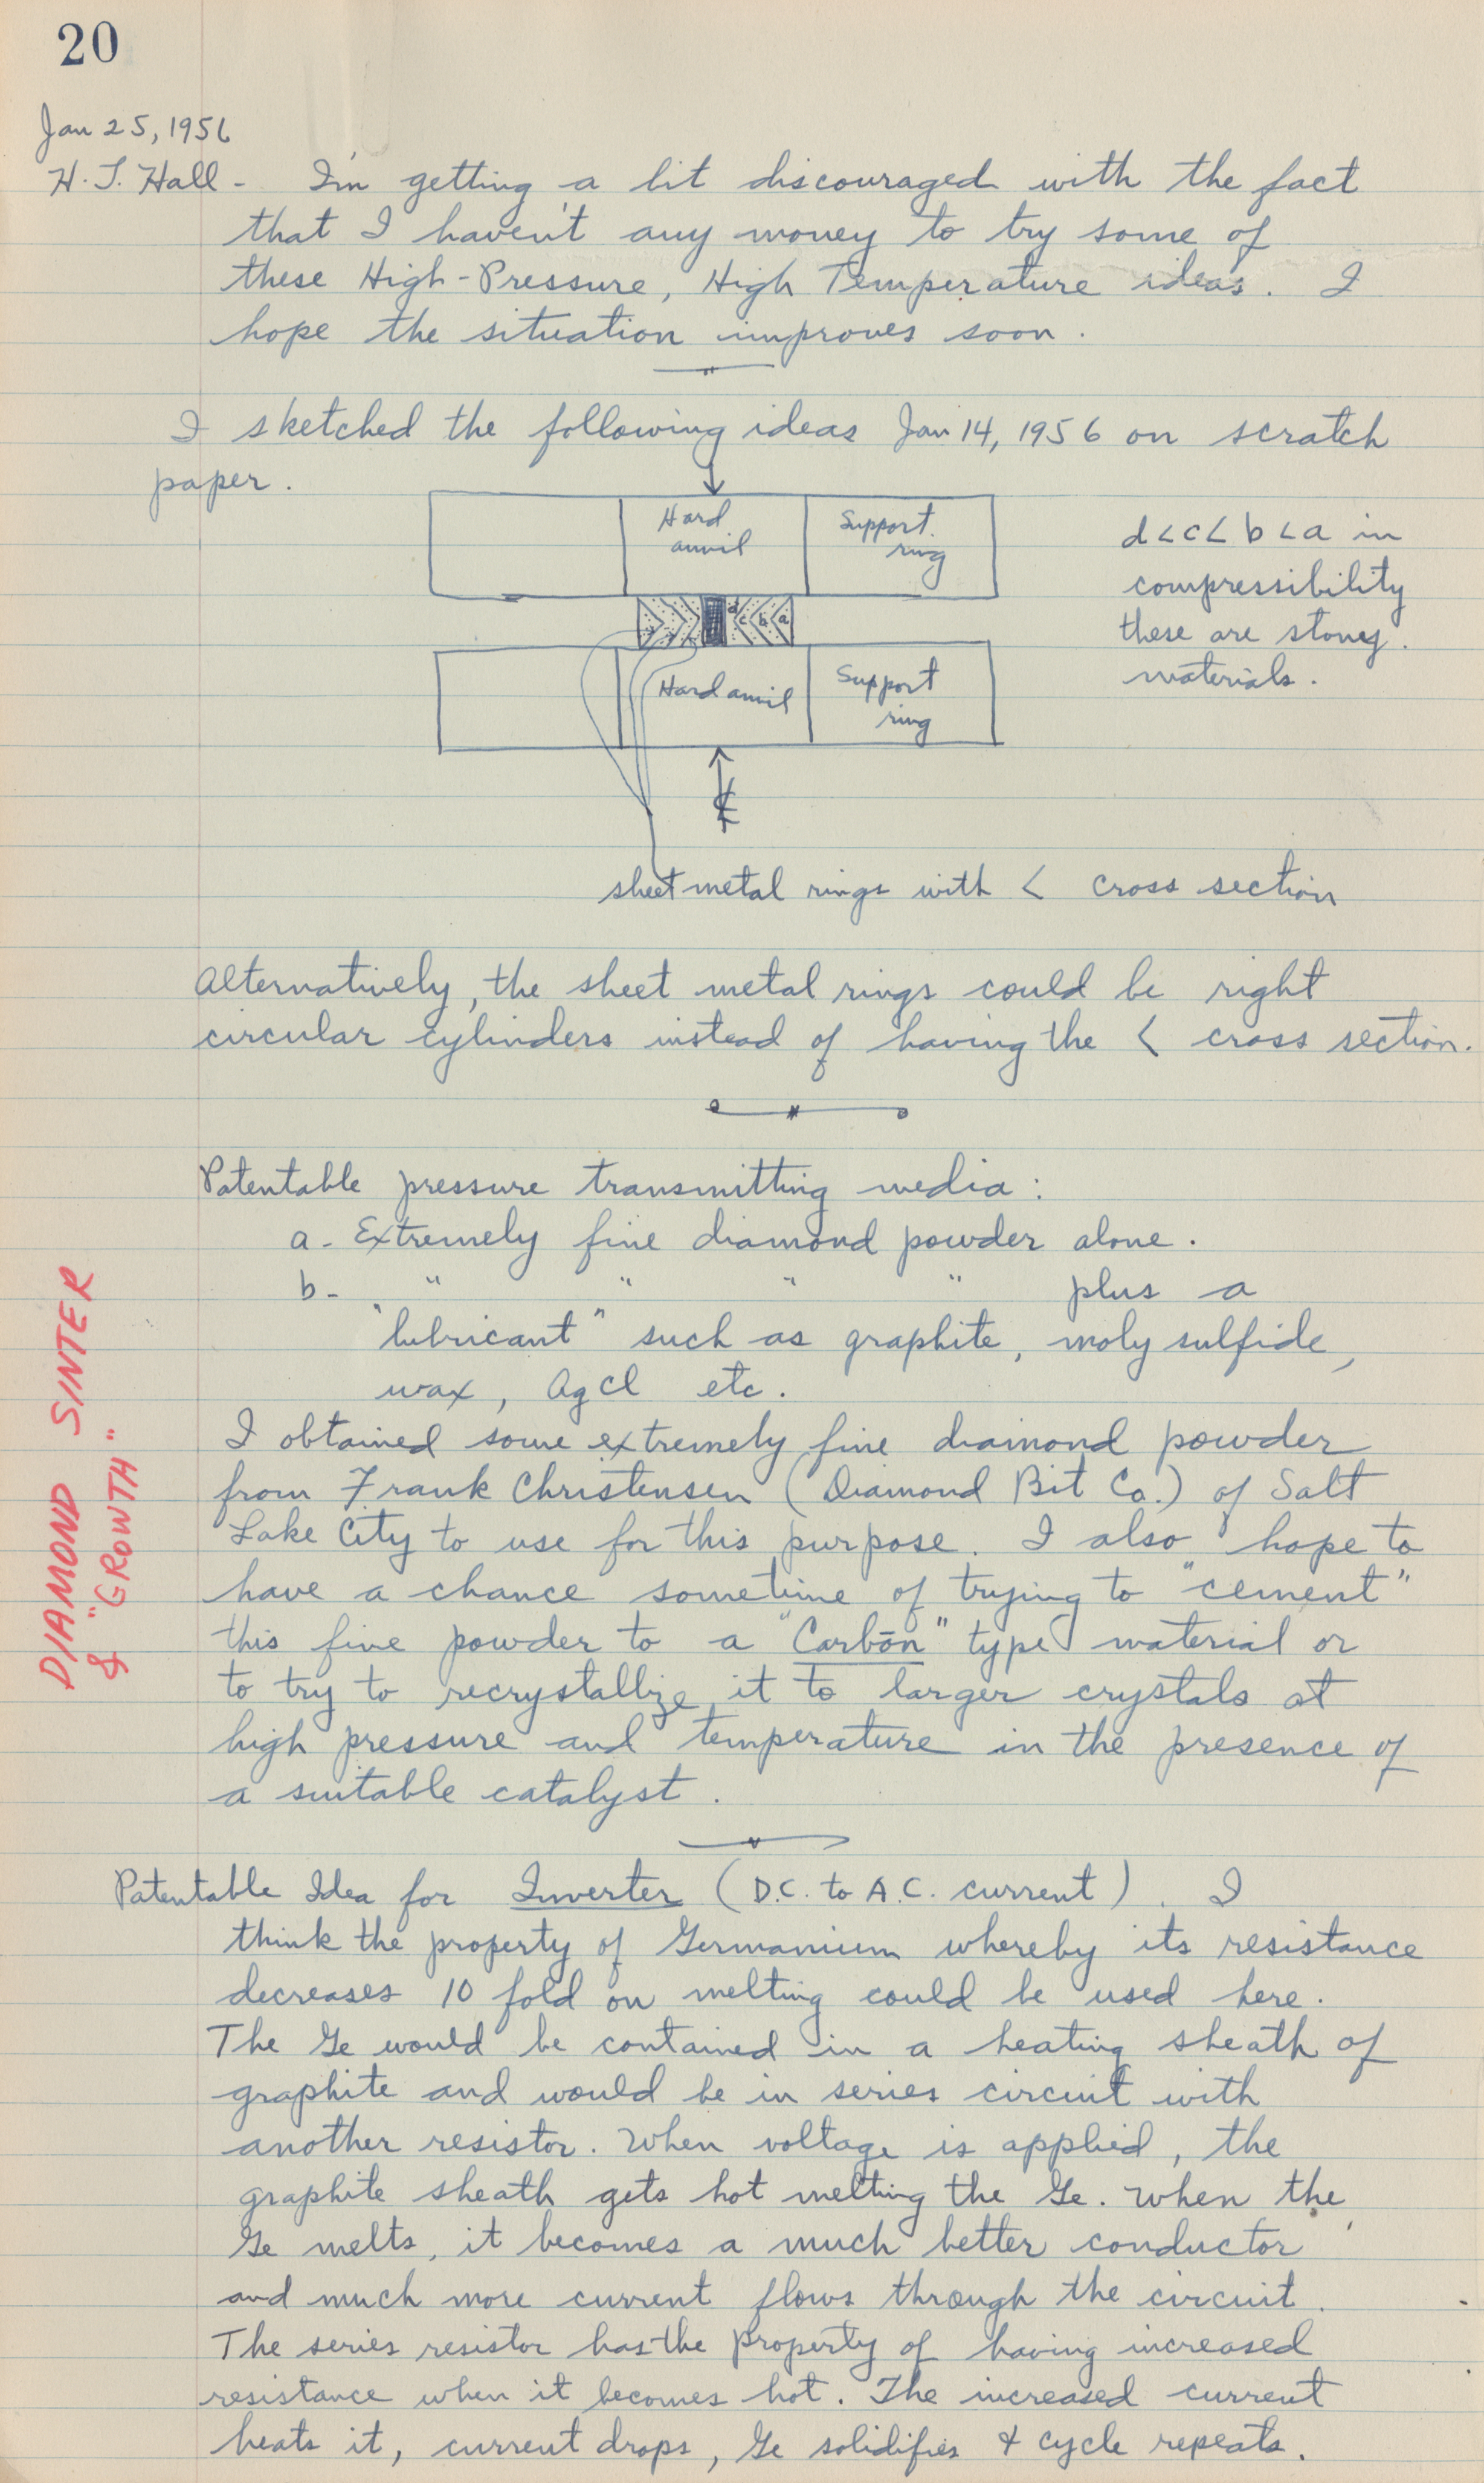 20
Jan 25, 1956
H. T. Hall - I'm getting a bit discouraged with the fact
that I haven't any money to try some of
these High-Pressure, High Temperature ideas. I
hope the situation improves soon.
I sketched the following ideas Jan 14, 1956 on scratch
paper.
Hard
anvil
Support
ring
d<c< b <a in
compressibility
these are stoney
materials.
d c b a
Hard anvil
Support
ring
℄
sheet metal rings with < cross section
Alternatively, the sheet metal rings could be right
circular cylinders instead of having the < cross section.
Patentable pressure transmitting media:
a - Extremely fine diamond powder alone.
b - " " " " plus a
"lubricant" such as graphite, moly sulfide,
wax, AgCl etc.
DIAMOND SINTER
& "GROWTH"
I obtained some extremely fine diamond powder
from Frank Christensen (Diamond Bit Co.) of Salt
Lake City to use for this purpose. I also hope to
have a chance sometime of trying to "cement"
this fine powder to a "Carbōn" type material or
to try to recrystallize it to larger crystals at
high pressure and temperature in the presence of
a suitable catalyst.
Patentable Idea for Inverter (D.C. to A.C. current). I
think the property of Germanium whereby its resistance
decreases 10 fold on melting could be used here.
The Ge would be contained in a heating sheath of
graphite and would be in series circuit with
another resistor. When voltage is applied, the
graphite sheath gets hot melting the Ge. When the
Ge melts, it becomes a much better conductor
and much more current flows through the circuit.
The series resistor has the property of having increased
resistance when it becomes hot. The increased current
heats it, current drops, Ge solidifies & cycle repeats.